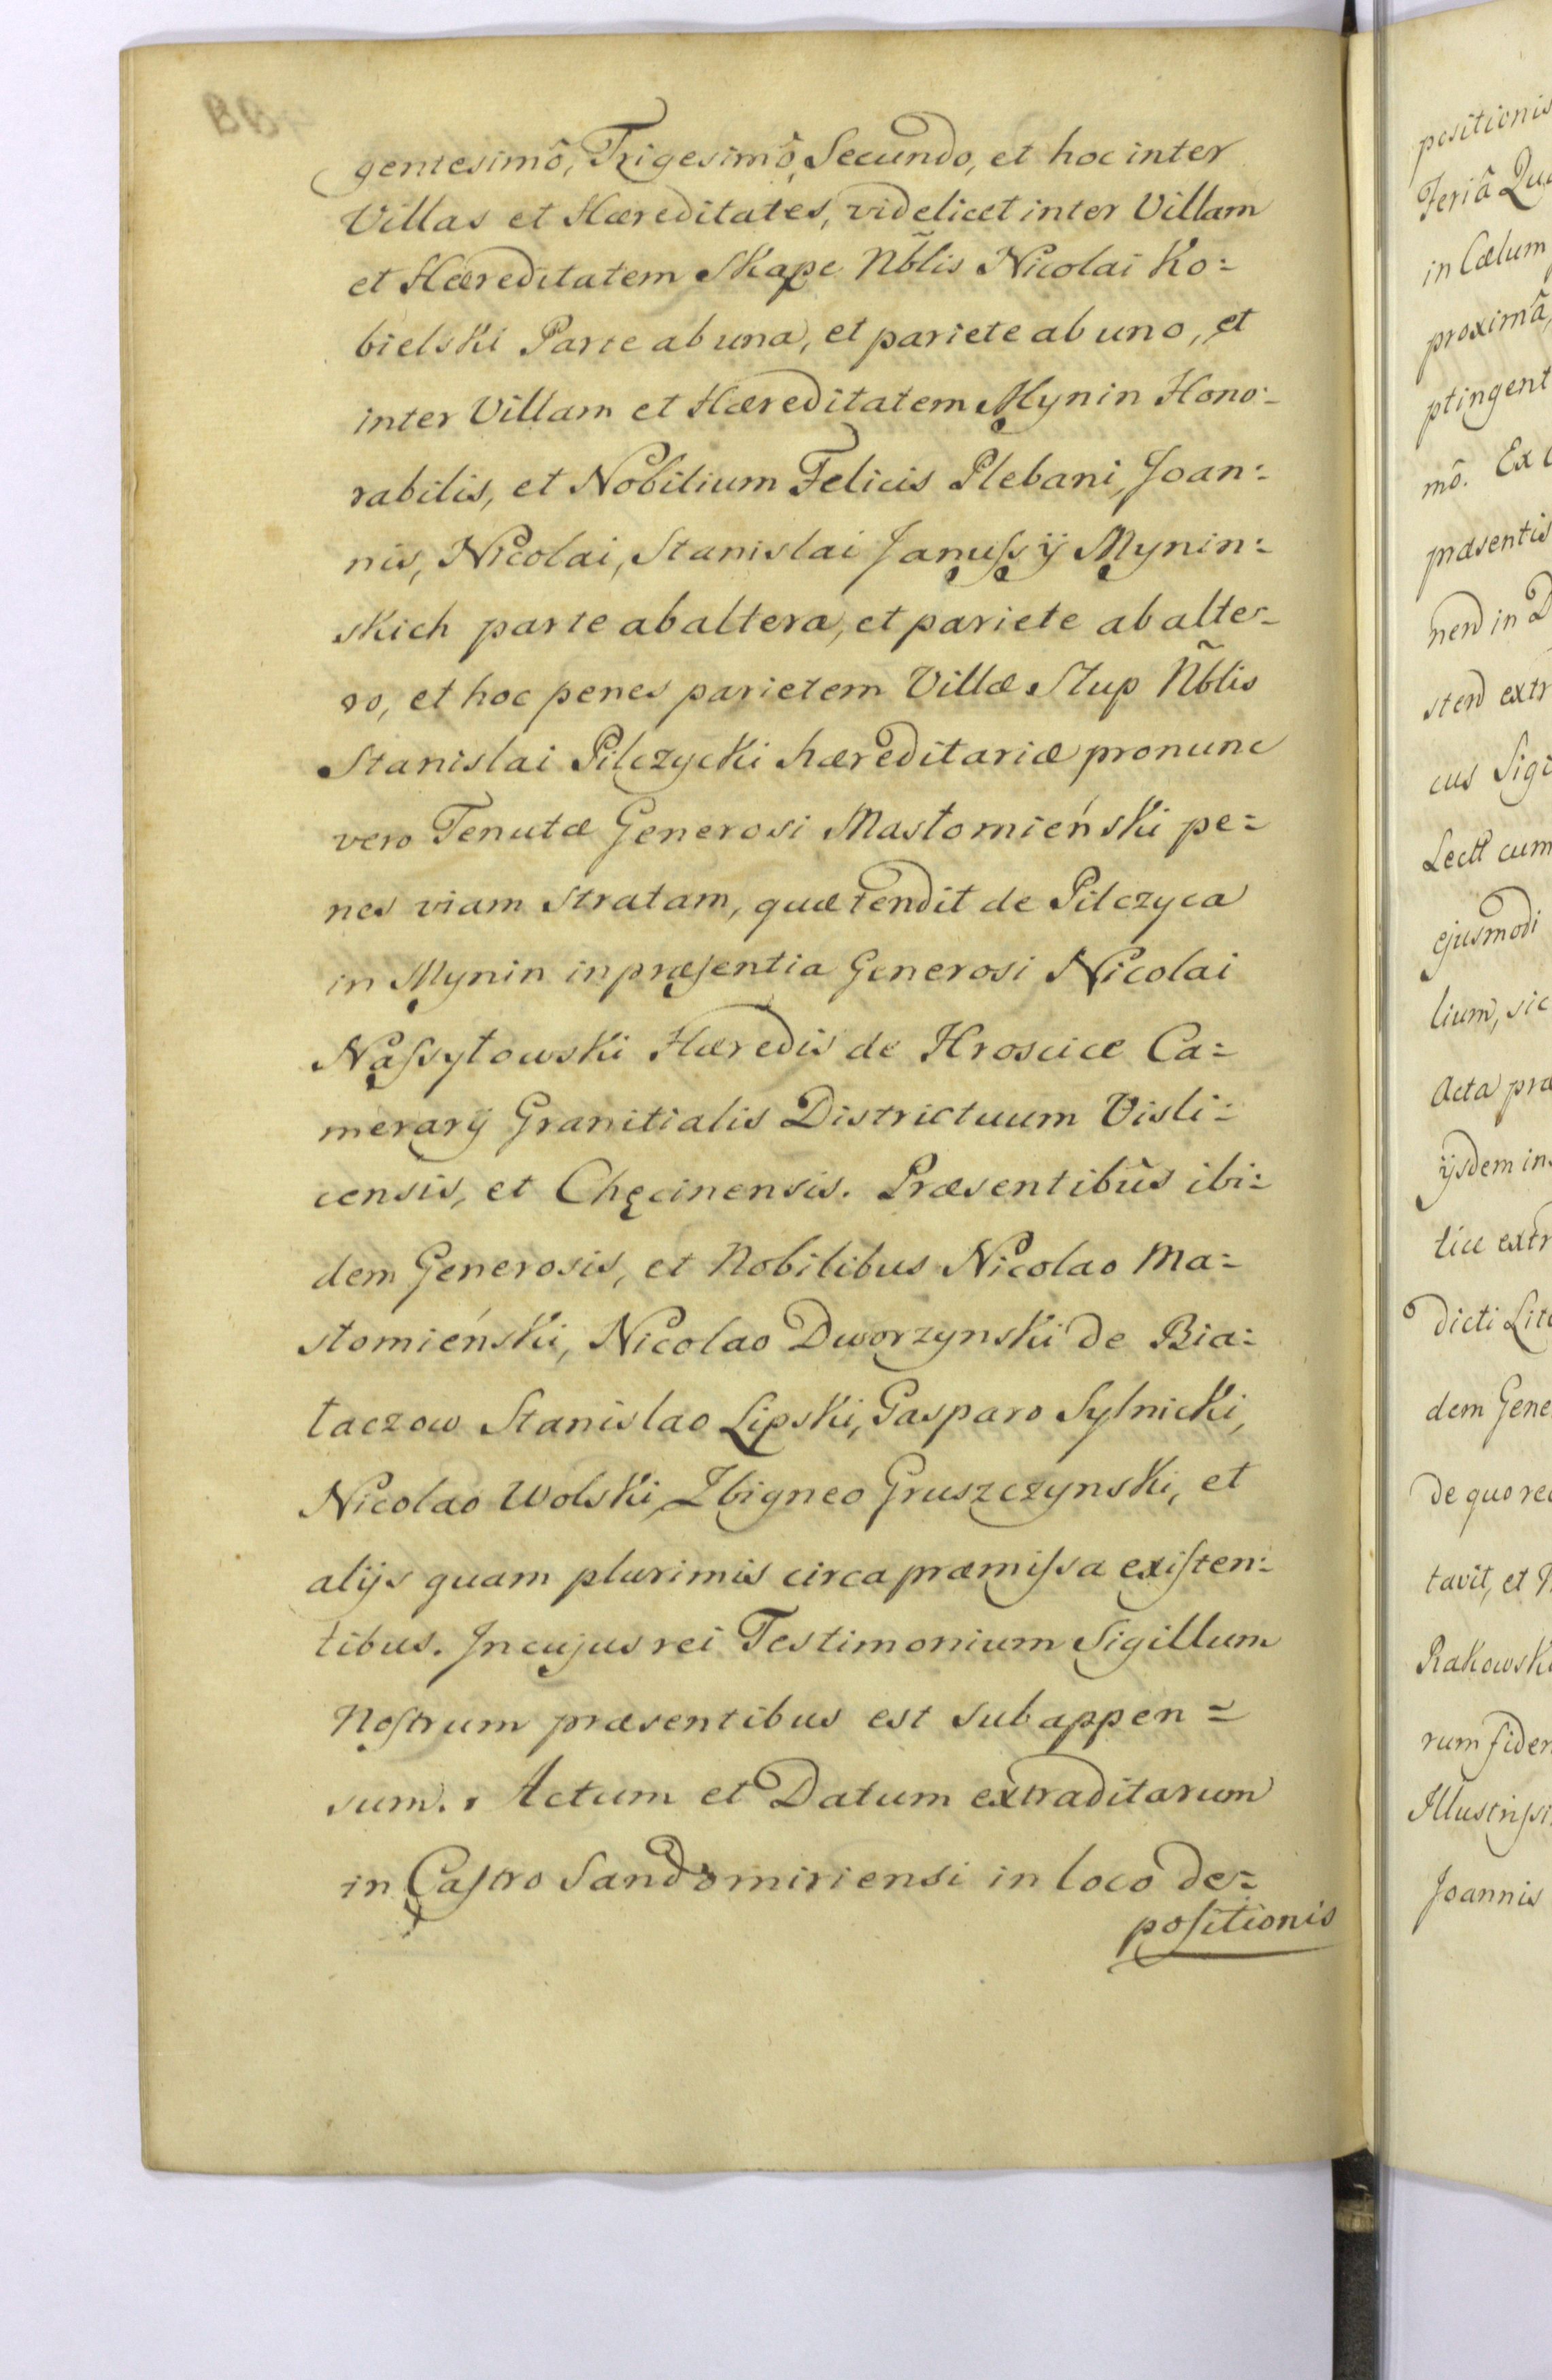 gentesimô, Trigesimô, Secundo, et hoc inter
Villas et Hæreditates, videlicet inter Villam
et Hæreditatem Skape Nb̃lis Nicolai Ko=
bielski Parte ab una, et pariete ab uno, et
inter Villam et Hæreditatem Mynin Hono=
rabilis, et Nobilium Felicis Plebani, Joan=
nis, Nicolai, Stanislai Januſsÿ Mynin=
skich parte ab altera, et pariete ab alte=
ro, et hoc penes parietem Villæ Słup Nb̃lis
Stanislai Pilczycki hæreditariæ pro nunc
vero Tenutæ Generosi Masłomieński pe=
nes viam stratam, quæ tendit de Pilczyca
in Mynin in præſentia Generosi Nicolai
Naſsyłowski Hæredis de Hroscice Ca=
merarÿ Granitialis Districtuum Visli=
censis, et Chęcinensis. Præsentibûs ibi=
dem Generosis, et Nobilibus Nicolao Ma=
słomieński, Nicolao Dworzynski de Bia=
łaczow Stanislao Lipski, Gasparo Sylnicki,
Nicolao Wolski, Zbigneo Gruszczynski, et
alijs quam plurimis circa præmiſsa exiſten=
tibus. In cujus rei Testimonium Sigillum
Noſtrum præsentibus est subappen=
sum. Actum et Datum extraditarum
in Caſtro Sandomiriensi in loco de=
poſitionis
positionis
Feriâ Qu
in Cœlum
proximâ,
ptingent
mô. Ex
præsentis
nend in D
stend extr
cus Sigi
Lectt cum
ejusmodi
lium, sic
Acta præ
ijsdem in
tice extr
dicti Lite
dem Gene
de quo rec
tavit, et
Rakowski
rum fidem
Illustriſsi
Joannis